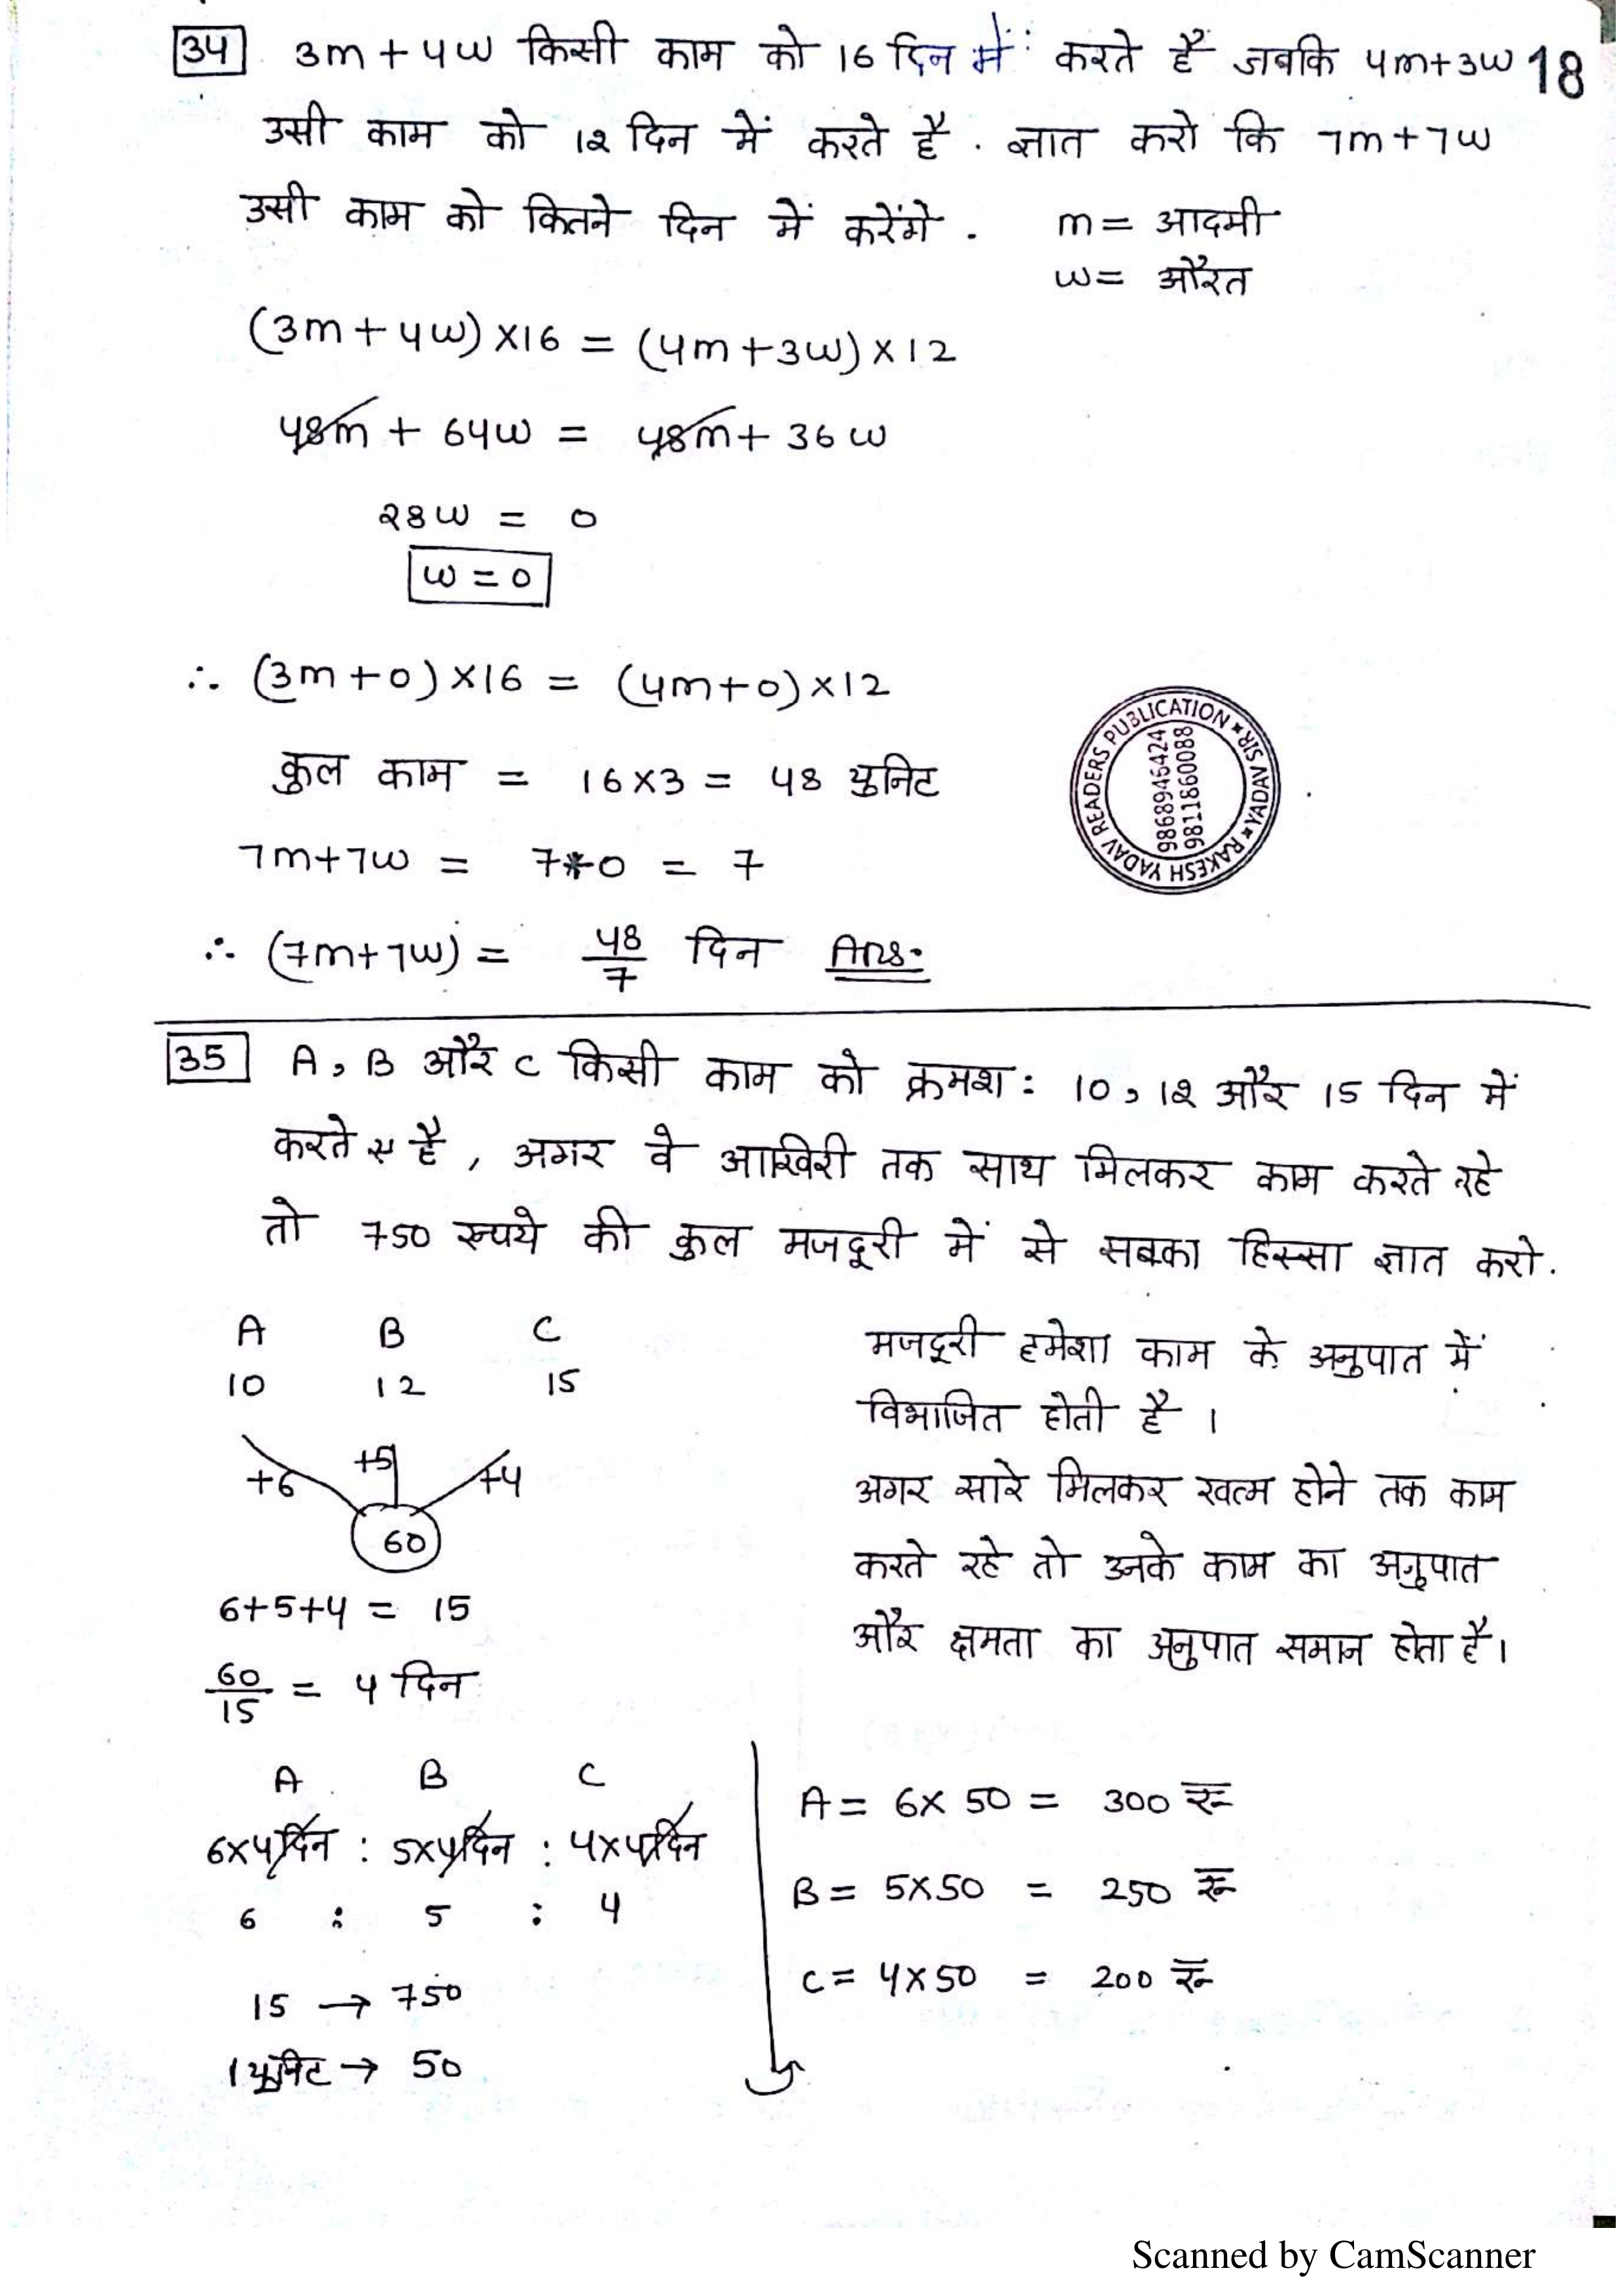 34 3m + 4w किसी काम को 16 दिन में करते हैं जबकि 4m+3w 18
उसी काम को 12 दिन में करते है . ज्ञात करो कि 7m + 7w
उसी काम को कितने दिन में करेंगे .
m = आदमी
w = औरत
(3m + 4w) x16 = (4m + 3w) x 12
48m + 64w = 48m + 36w
28w = 0
w = 0
∴ (3m + 0) x16 = (4m + 0) x12
कुल काम = 16x3 = 48 युनिट
7m+7w = 7+0 = 7
∴ (7m+7w) = 48/7 दिन Ans.
RAKESH YADAV READERS PUBLICATION * YADAV SIR *
9868946424
9811860088
35 A, B और C किसी काम को क्रमश: 10, 12 और 15 दिन में
करते है, अगर वे आखिरी तक साथ मिलकर काम करते रहे
तो 750 रूपये की कुल मजदूरी में से सबका हिस्सा ज्ञात करो.
A B C
10 12 15
+6 +5 +4
60
6+5+4 = 15
60/15 = 4 दिन
मजदूरी हमेशा काम के अनुपात में
विभाजित होती है ।
अगर सारे मिलकर खत्म होने तक काम
करते रहे तो उनके काम का अनुपात
और क्षमता का अनुपात समान होता है।
A B C
6x4दिन : 5x4दिन : 4x4दिन
6 : 5 : 4
15 → 750
1 युनिट → 50
A = 6x 50 = 300 रू
B = 5x50 = 250 रू
C = 4x50 = 200 रू
Scanned by CamScanner